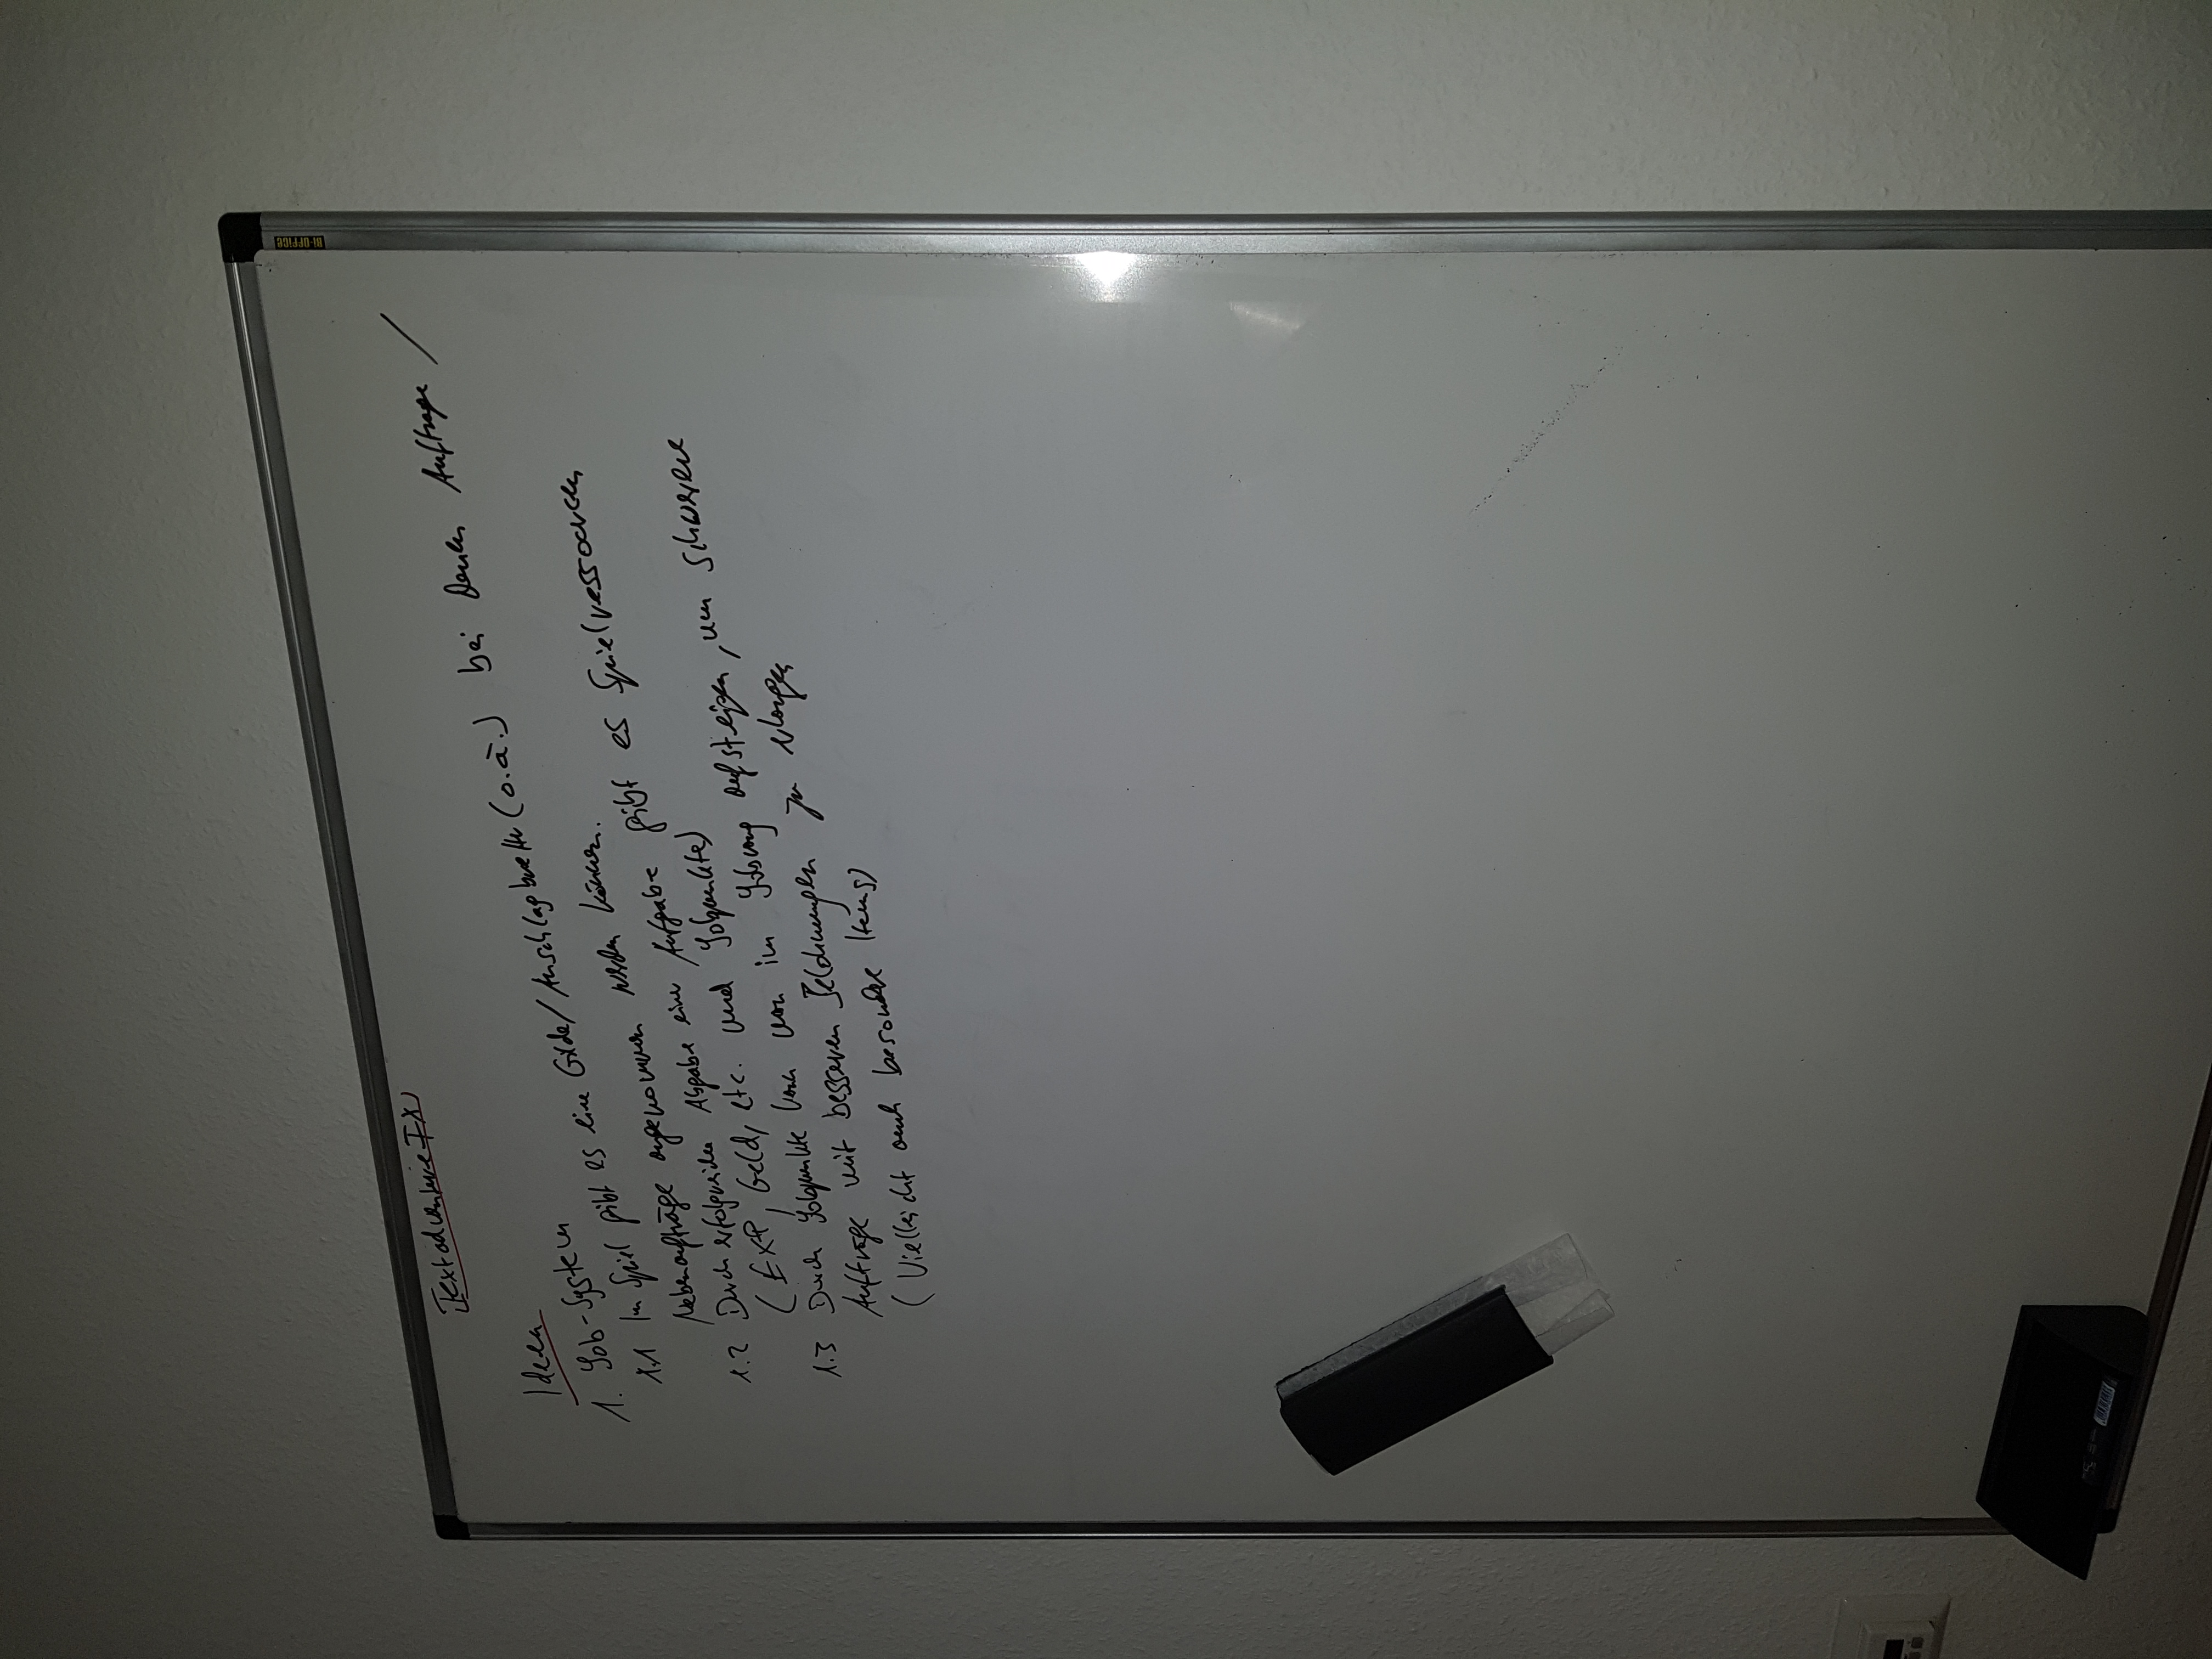 Textadventure IX
Ideen
1. Job-System
1.1 Im Spiel gibt es eine Gilde/Anschlagbretter (o.ä.) bei denen Aufträge /
Nebenaufträge angenommen werden können.
1.2 Durch erfolgreiche Abgabe einer Aufgabe gibt es Spielressourcen
(EXP, Geld, etc. und Jobpunkte)
1.3 Durch Jobpunkte kann man im Jobrang aufsteigen, um schwerere
Aufträge mit besseren Belohnungen zu erlangen
(Vielleicht auch besondere Items)
BI-OFFICE